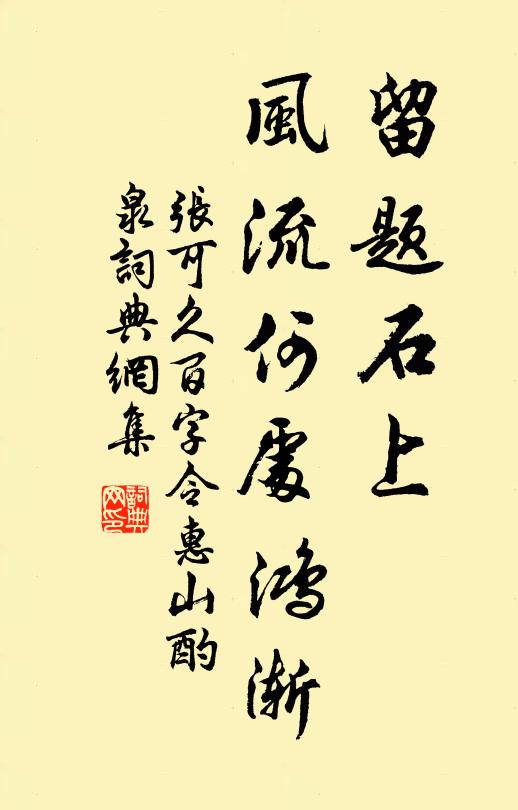 留题石上
風流何處鴻漸
張可久百字令惠山酌
泉詞典網集
詞典
网印